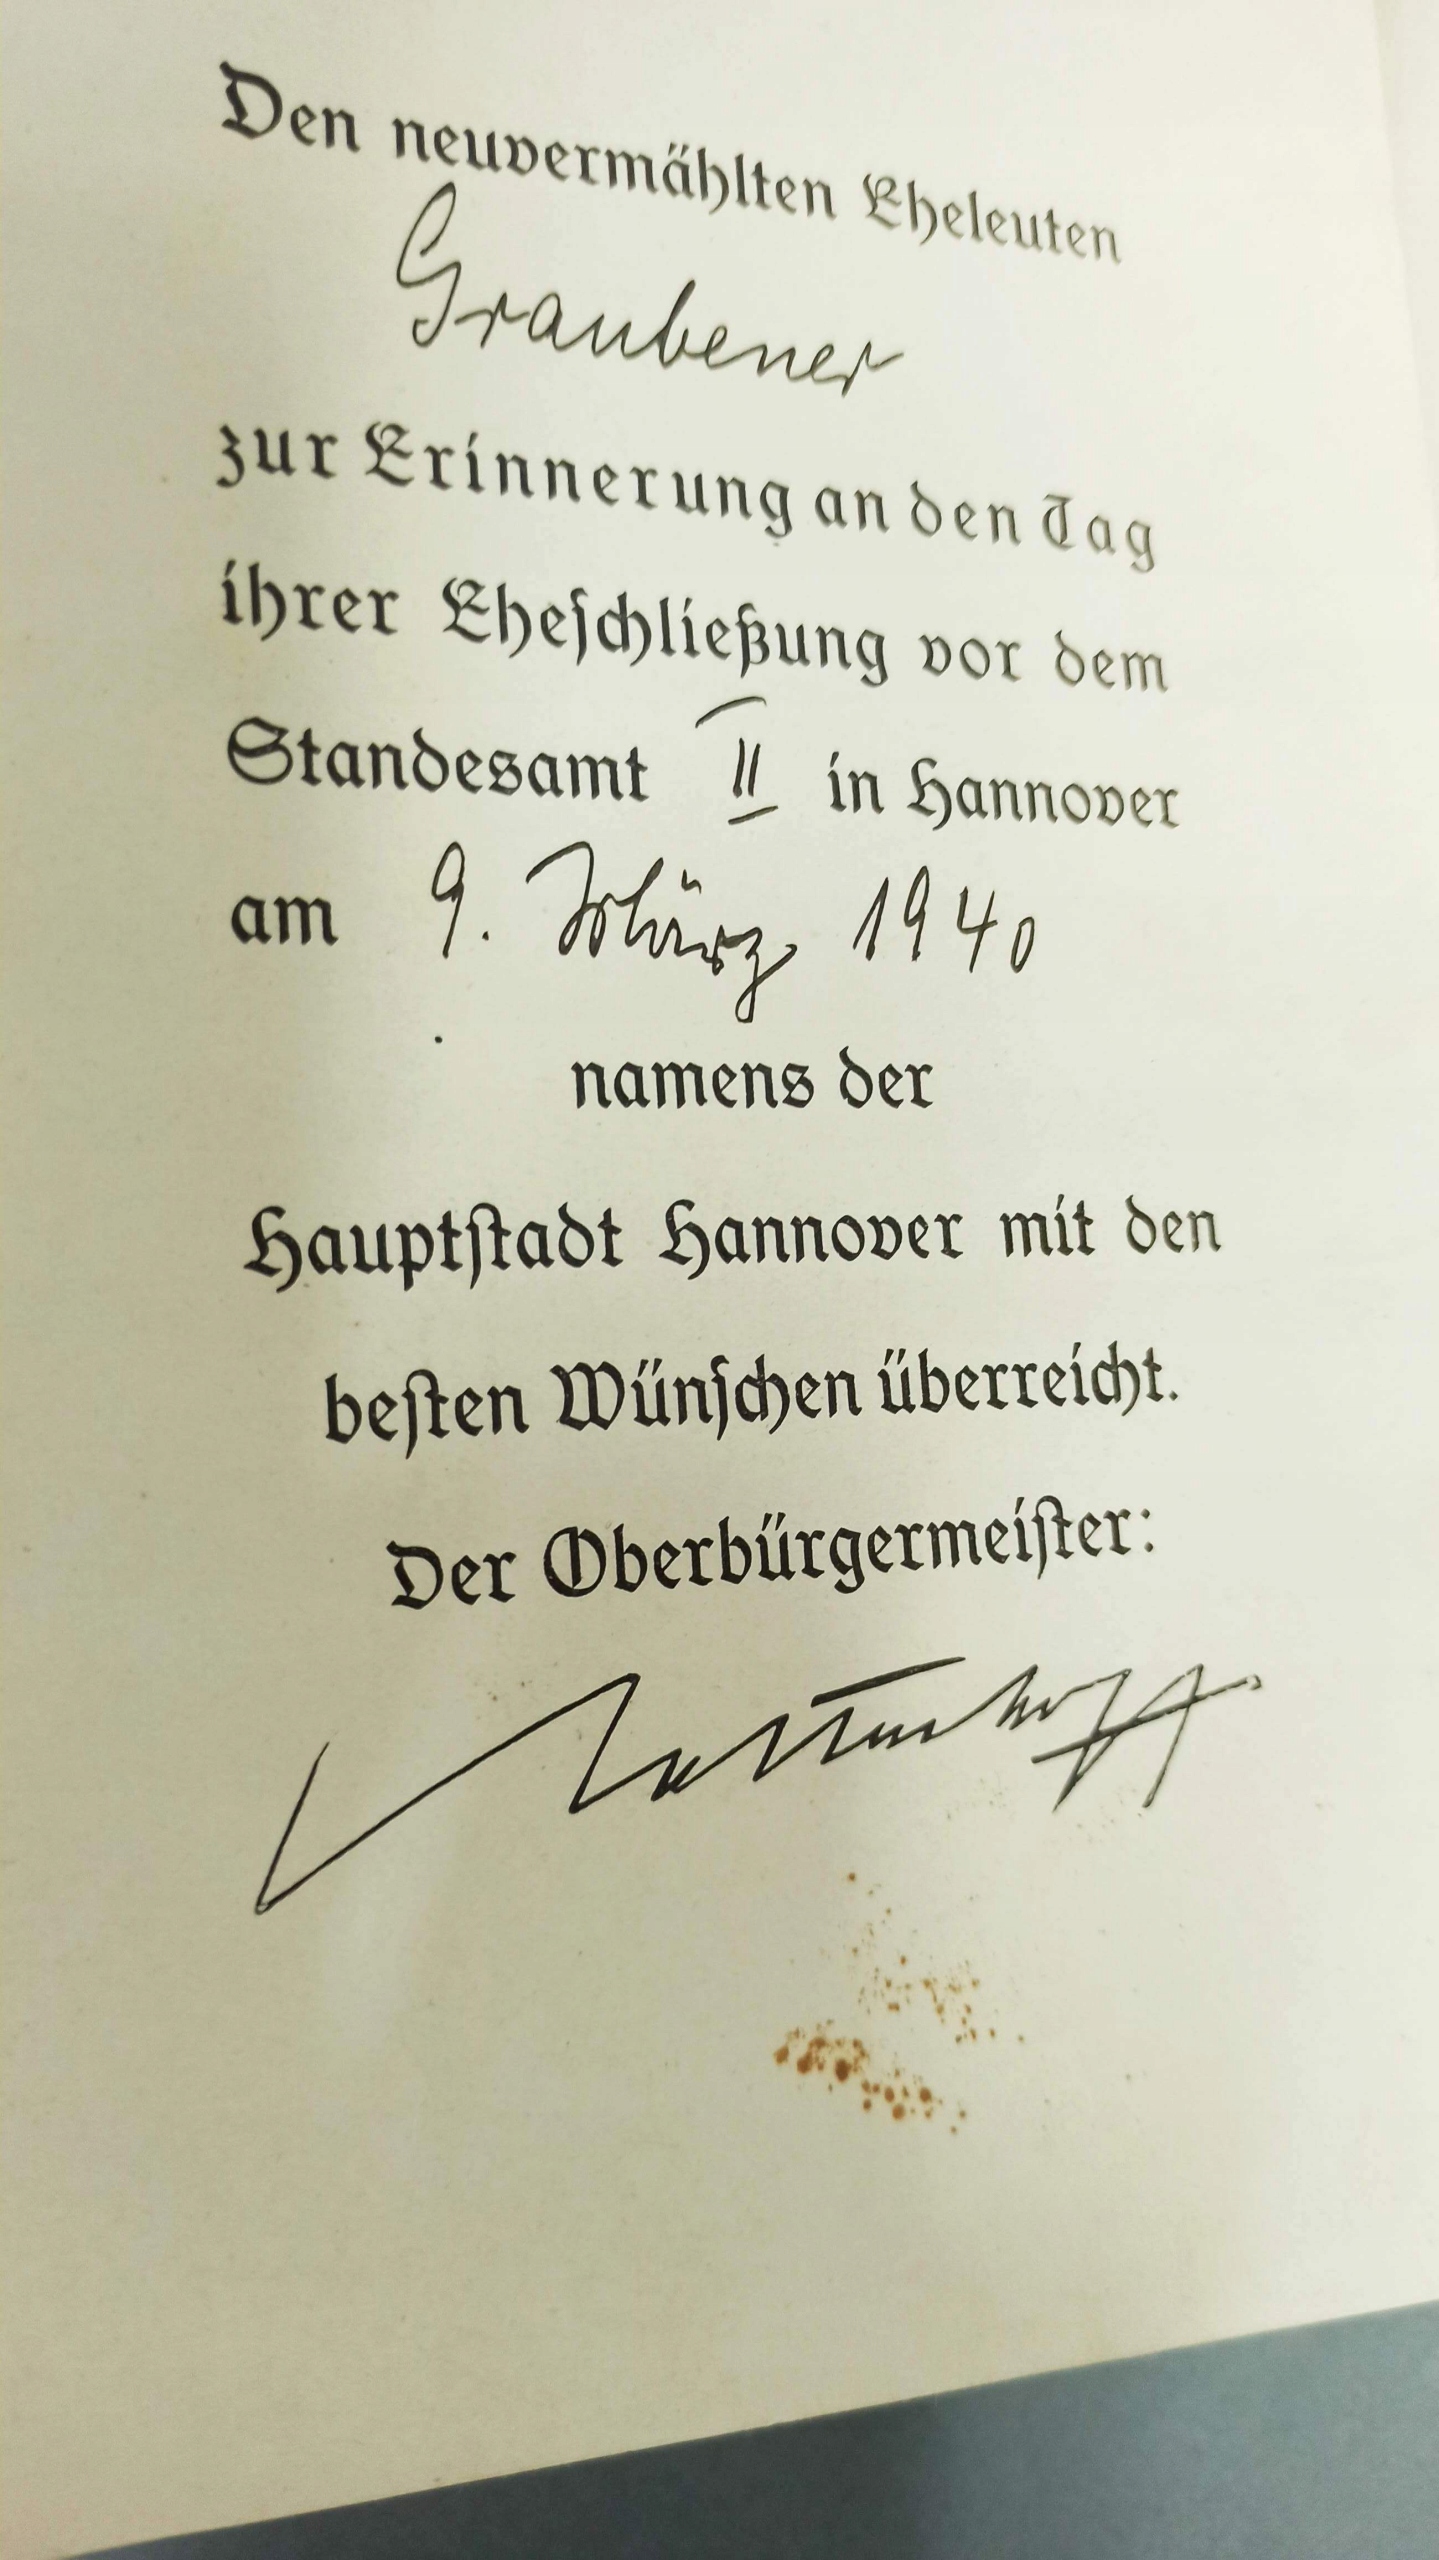 Den neuvermählten Eheleuten
Graubener
zur Erinnerung an den Tag
ihrer Eheschließung vor dem
Standesamt II in Hannover
am 9. März 1940
namens der
Hauptstadt Hannover mit den
besten Wünschen überreicht.
Der Oberbürgermeister: